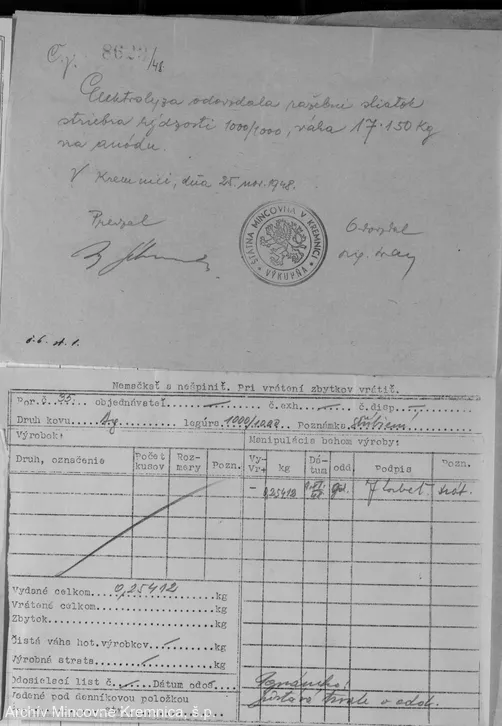 Č.j. 86 /48
Elektrolyza odovzdala razebni sliatok
striebra rýdzosti 1000/1000, váha 17·150 Kg
na anódu.
V Kremnici, dňa 25. nov. 1948.
Prevzal
Odovzdal
ŠTÁTNA MINCOVŇA V KREMNICI
VÝKUPŇA
Nemačkať a nešpiniť. Pri vrátení zbytkov vrátiť.
Por.č. 35. objednávateľ č.exh. č.disp
Druh kovu. Ag. legúra. 1000/1000 Poznámka
Výrobok: Manipulácia behom výroby:
Druh, označenie Počet kusov Rozmery Pozn. Vy- Vr+ kg Dátum odd. Podpis Pozn.
- 0,25412
Vydané celkom 0,25412 kg
Vrátené celkom kg
Zbytok kg
Čistá váha hot.výrobkov kg
Výrobná strata kg
Odosielací list č. Dátum odos
Vedené pod denníkovou položkou
Archív Mincovne Kremnica, š.p.